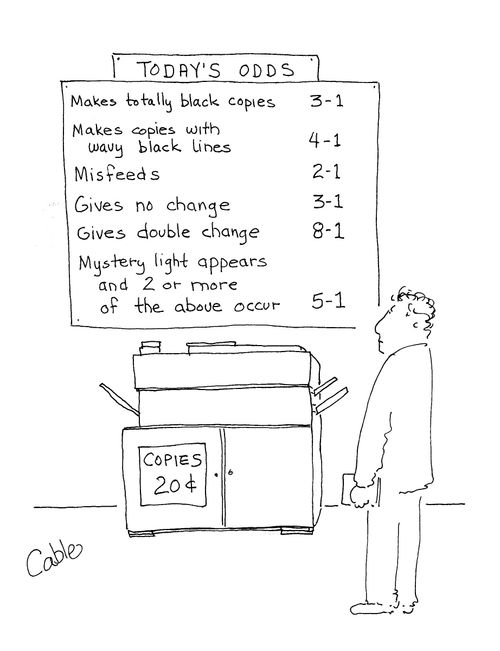 TODAY'S ODDS
Makes totally black copies 3-1
Makes copies with
wavy black lines 4-1
Misfeeds 2-1
Gives no change 3-1
Gives double change 8-1
Mystery light appears
and 2 or more
of the above occur 5-1
COPIES
20¢
Cable